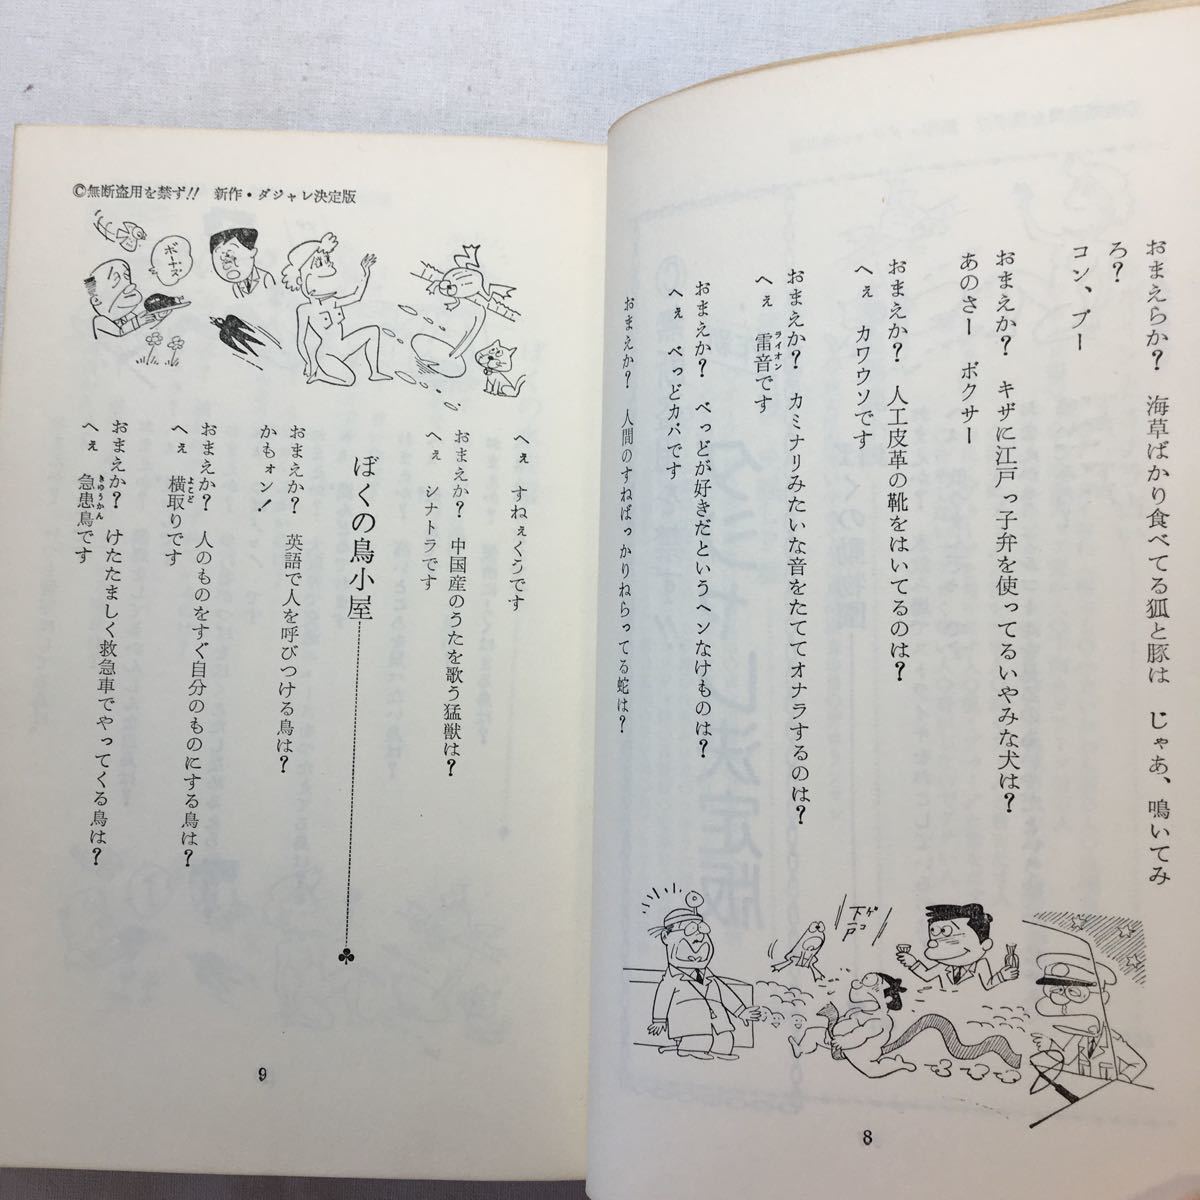 おまえらか？　海草ばかり食べてる狐と豚は　じゃあ、鳴いてみ
ろ？
コン、ブー
おまえか？　キザに江戸っ子弁を使ってるいやみな犬は？
あのさー　ボクサー
おまえか？　人工皮革の靴をはいてるのは？
へぇ　カワウソです
おまえか？　カミナリみたいな音をたててオナラするのは？
へぇ　雷音です
ライオン
おまえか？　べっどが好きだというヘンなけものは？
へぇ　べっどカバです
おまえか？　人間のすねばっかりねらってる蛇は？
ゲコ
下戸
8
©無断盗用を禁ず!!　新作・ダジャレ決定版
ボーナズ
へぇ　すねぇくうです
おまえか？　中国産のうたを歌う猛獣は？
へぇ　シナトラです
ぼくの鳥小屋
おまえか？　英語で人を呼びつける鳥は？
かもォン！
おまえか？　人のものをすぐ自分のものにする鳥は？
へぇ　横取りです
よこど
おまえか？　けたたましく救急車でやってくる鳥は？
へぇ　急患鳥です
きゅうかん
9